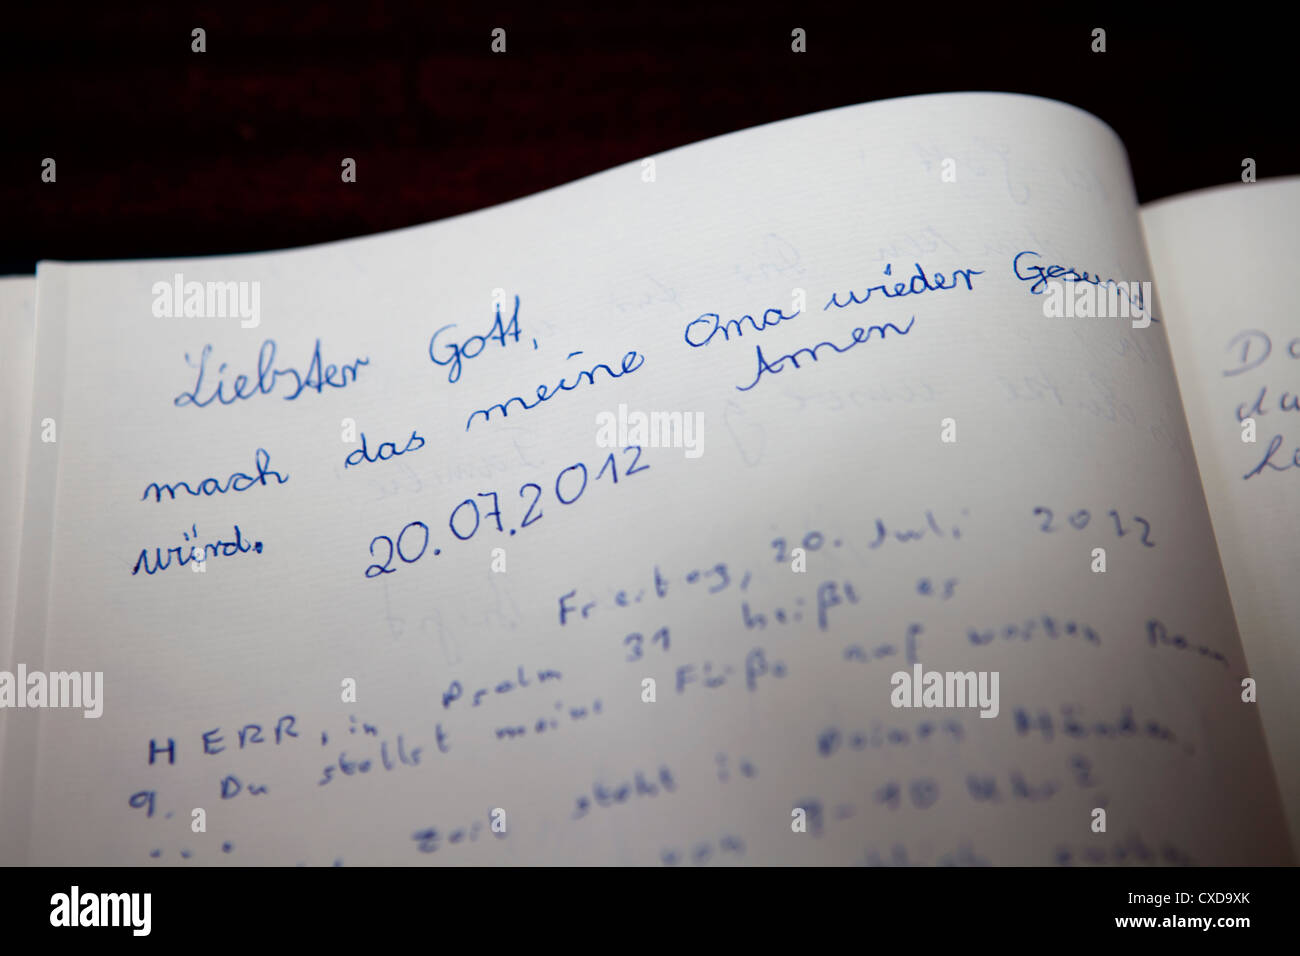 Liebster Gott,
mach das meine Oma wieder Gesund
würd. Amen
20.07.2012
Freitag, 20. Juli 2012
HERR, in Psalm 31 heißt es
9. Du stellst meine Füße auf weiten Raum
... Zeit steht in Deinen Händen.
von 9-10 Uhr?
alamy
Image ID: CXD9XK
www.alamy.com